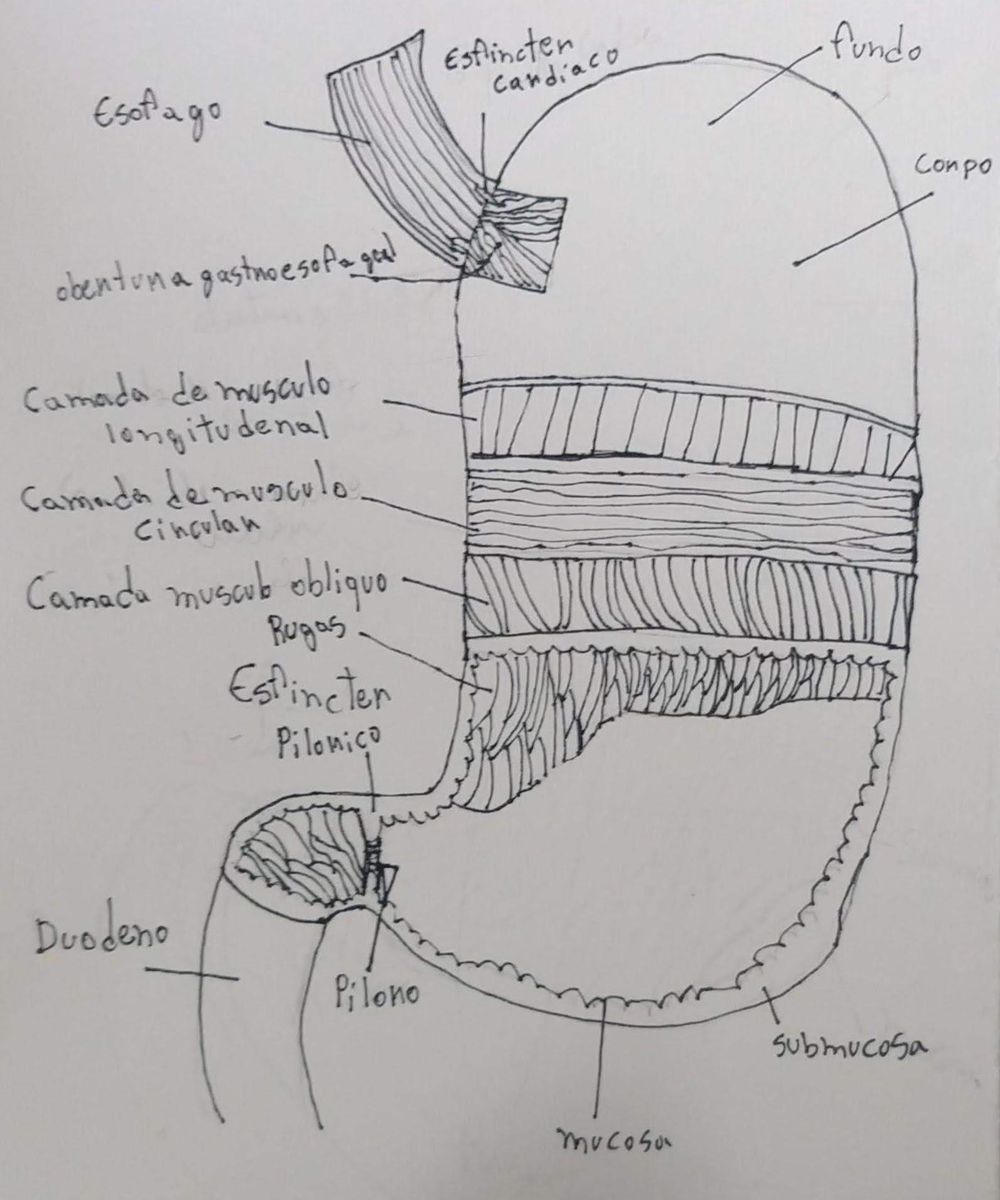 Esfincter
cardiaco
fundo
Esofago
Corpo
obertura gastroesofageal
Camada de musculo
longitudenal
Camada de musculo
Circular
Camada musculo obliquo
Rugas
Esfincter
Pilorico
Duodeno
Piloro
submucosa
mucosa